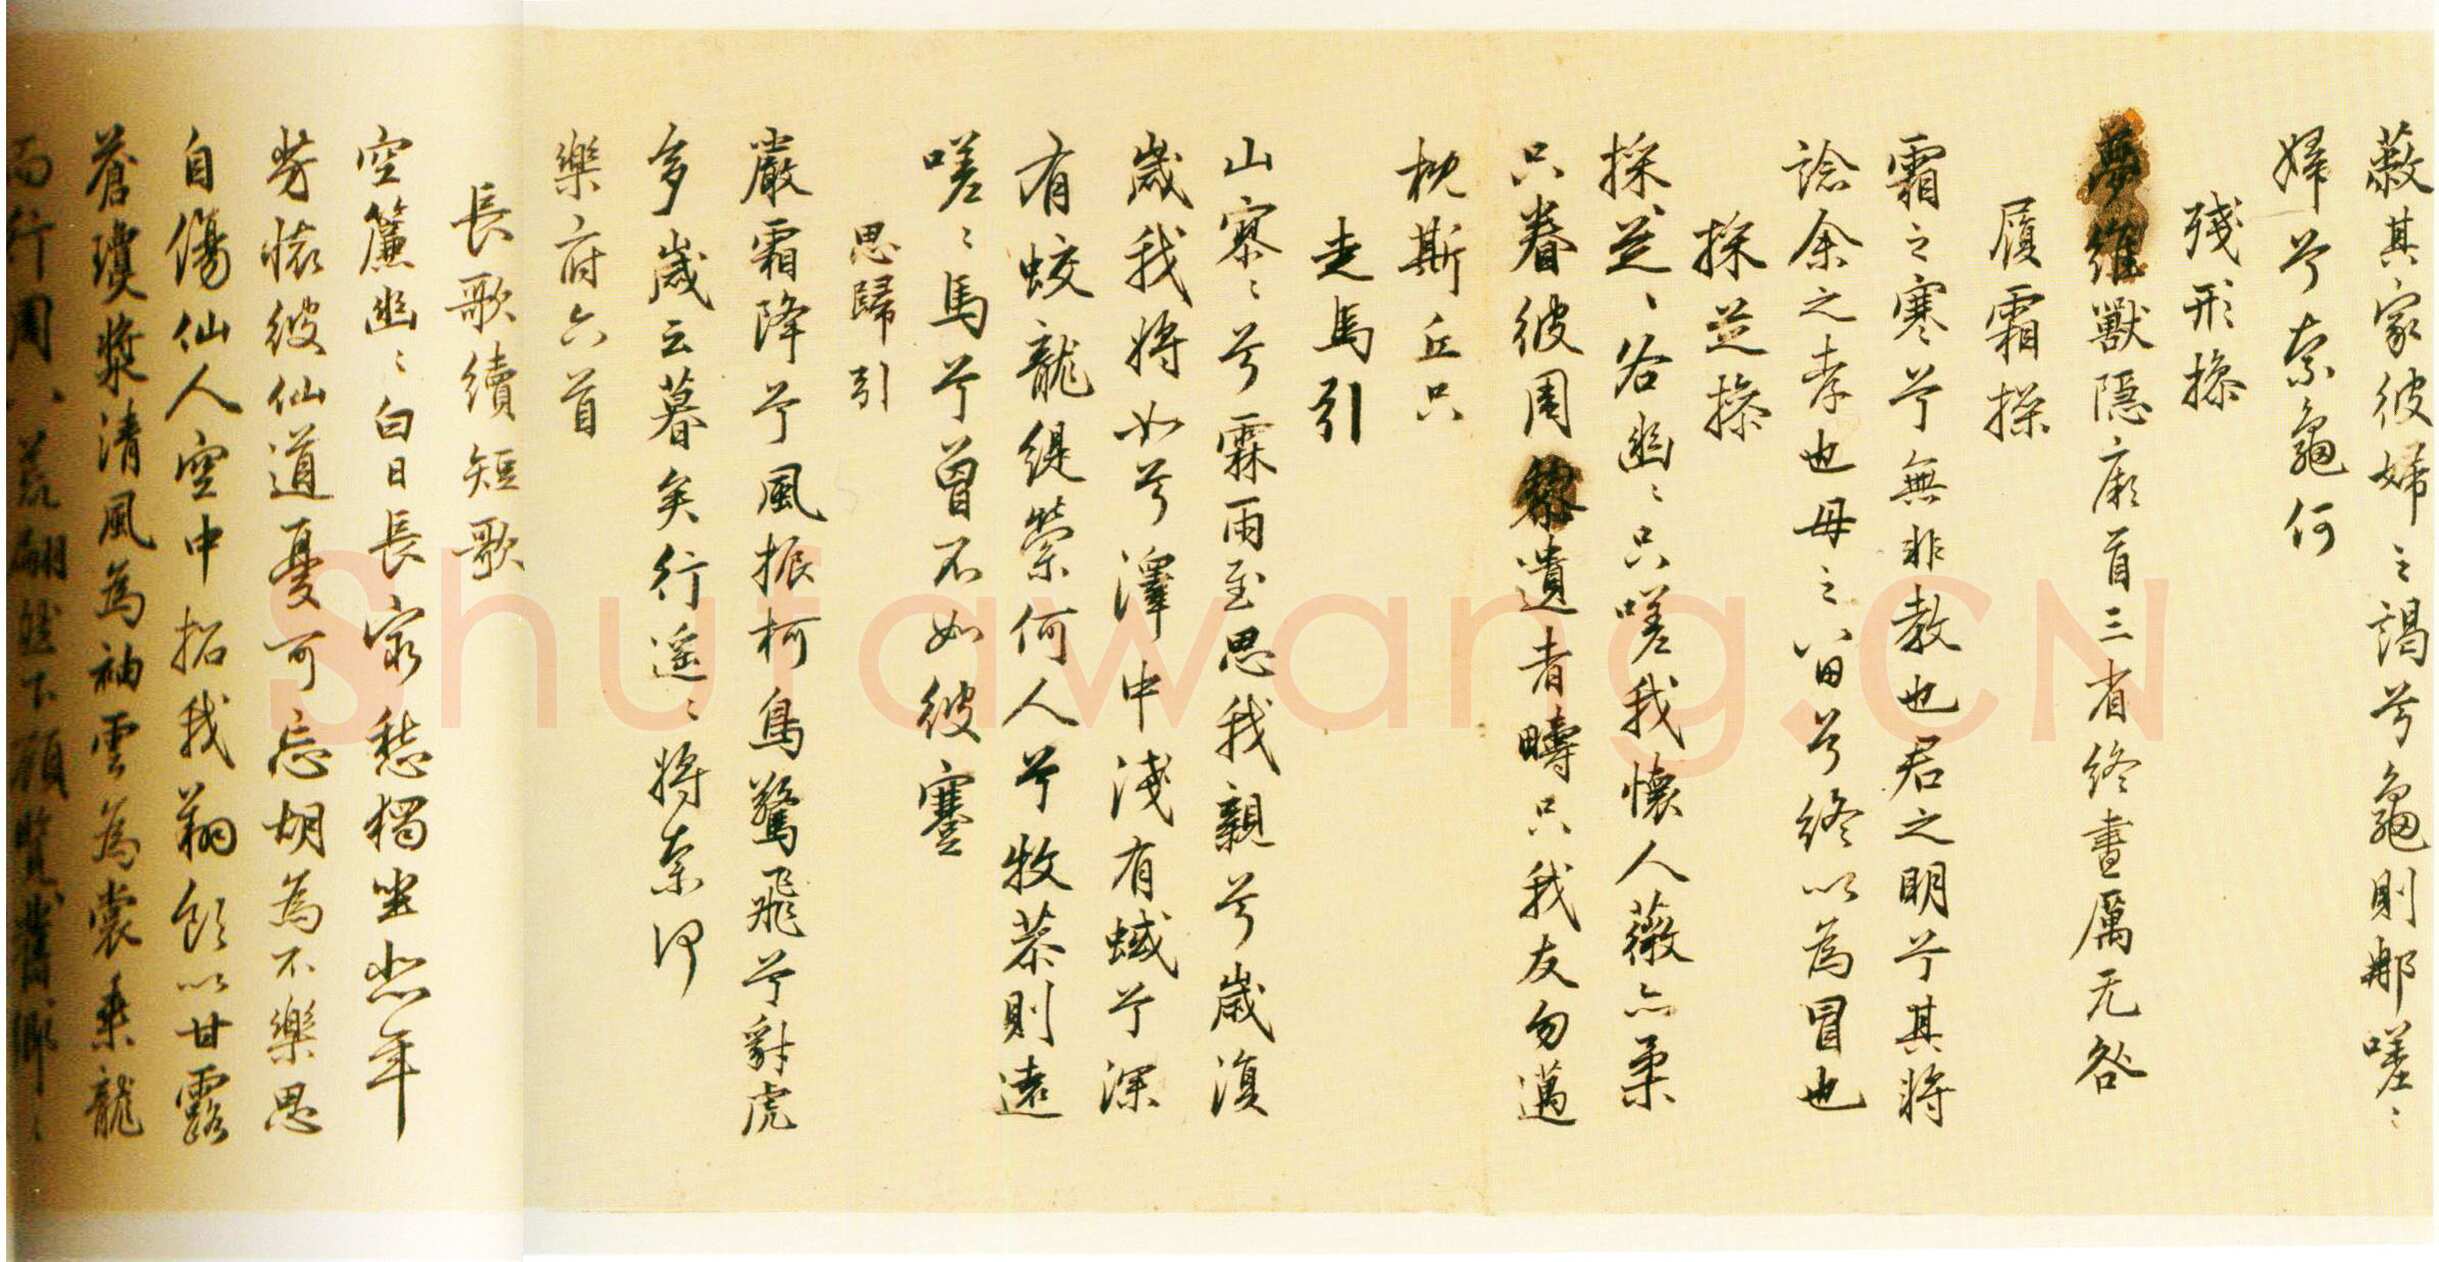 蔽其家彼婦之謁兮龜則那嗟〻
婦兮奈龜何
殘形操
夢維獸隱厥首三省終晝厲无咎
履霜操
霜之寒兮無非教也君之明兮其將
諗余之孝也母之兮終以為冒也
採芝操
採芝〻谷幽〻只嗟我懷人薇亦柔
只眷彼周黎遺者疇只我友勿邁
枕斯丘只
走馬引
山寥〻兮霖雨至思我親兮歲復
歲我將如兮澤中淺有蜮兮深
有蛟龍緹縈何人兮牧恭則遠
嗟〻馬兮曾不如彼蹇
思歸引
嚴霜降兮風振柯鳥驚飛兮豺虎
多歲云暮矣行遥〻將奈何
樂府六首
長歌續短歌
空簾幽〻白日長寂愁獨坐悲年
芳懷彼仙道憂可忘胡為不樂思
自傷仙人空中招我翱飲以甘露
蒼瓊漿清風為袖雲為裳乘龍
而行周、荒翩然下顧覽舊鄉〻
Shufawang.CN